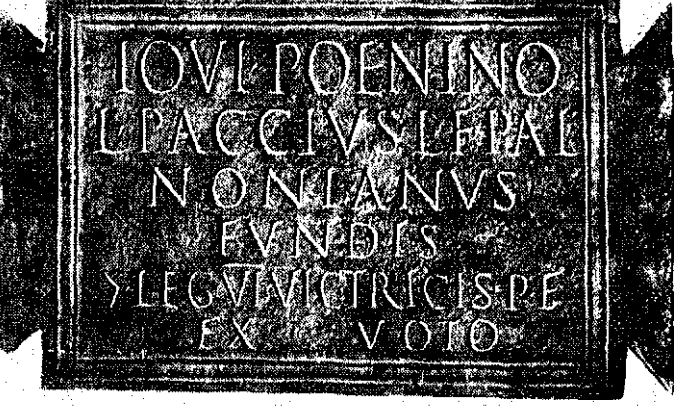 IOVI POENINO
L PACCIVS L F PAL
NONIANVS
FVNDIS
> LEG VI VICTRICIS P F
EX VOTO